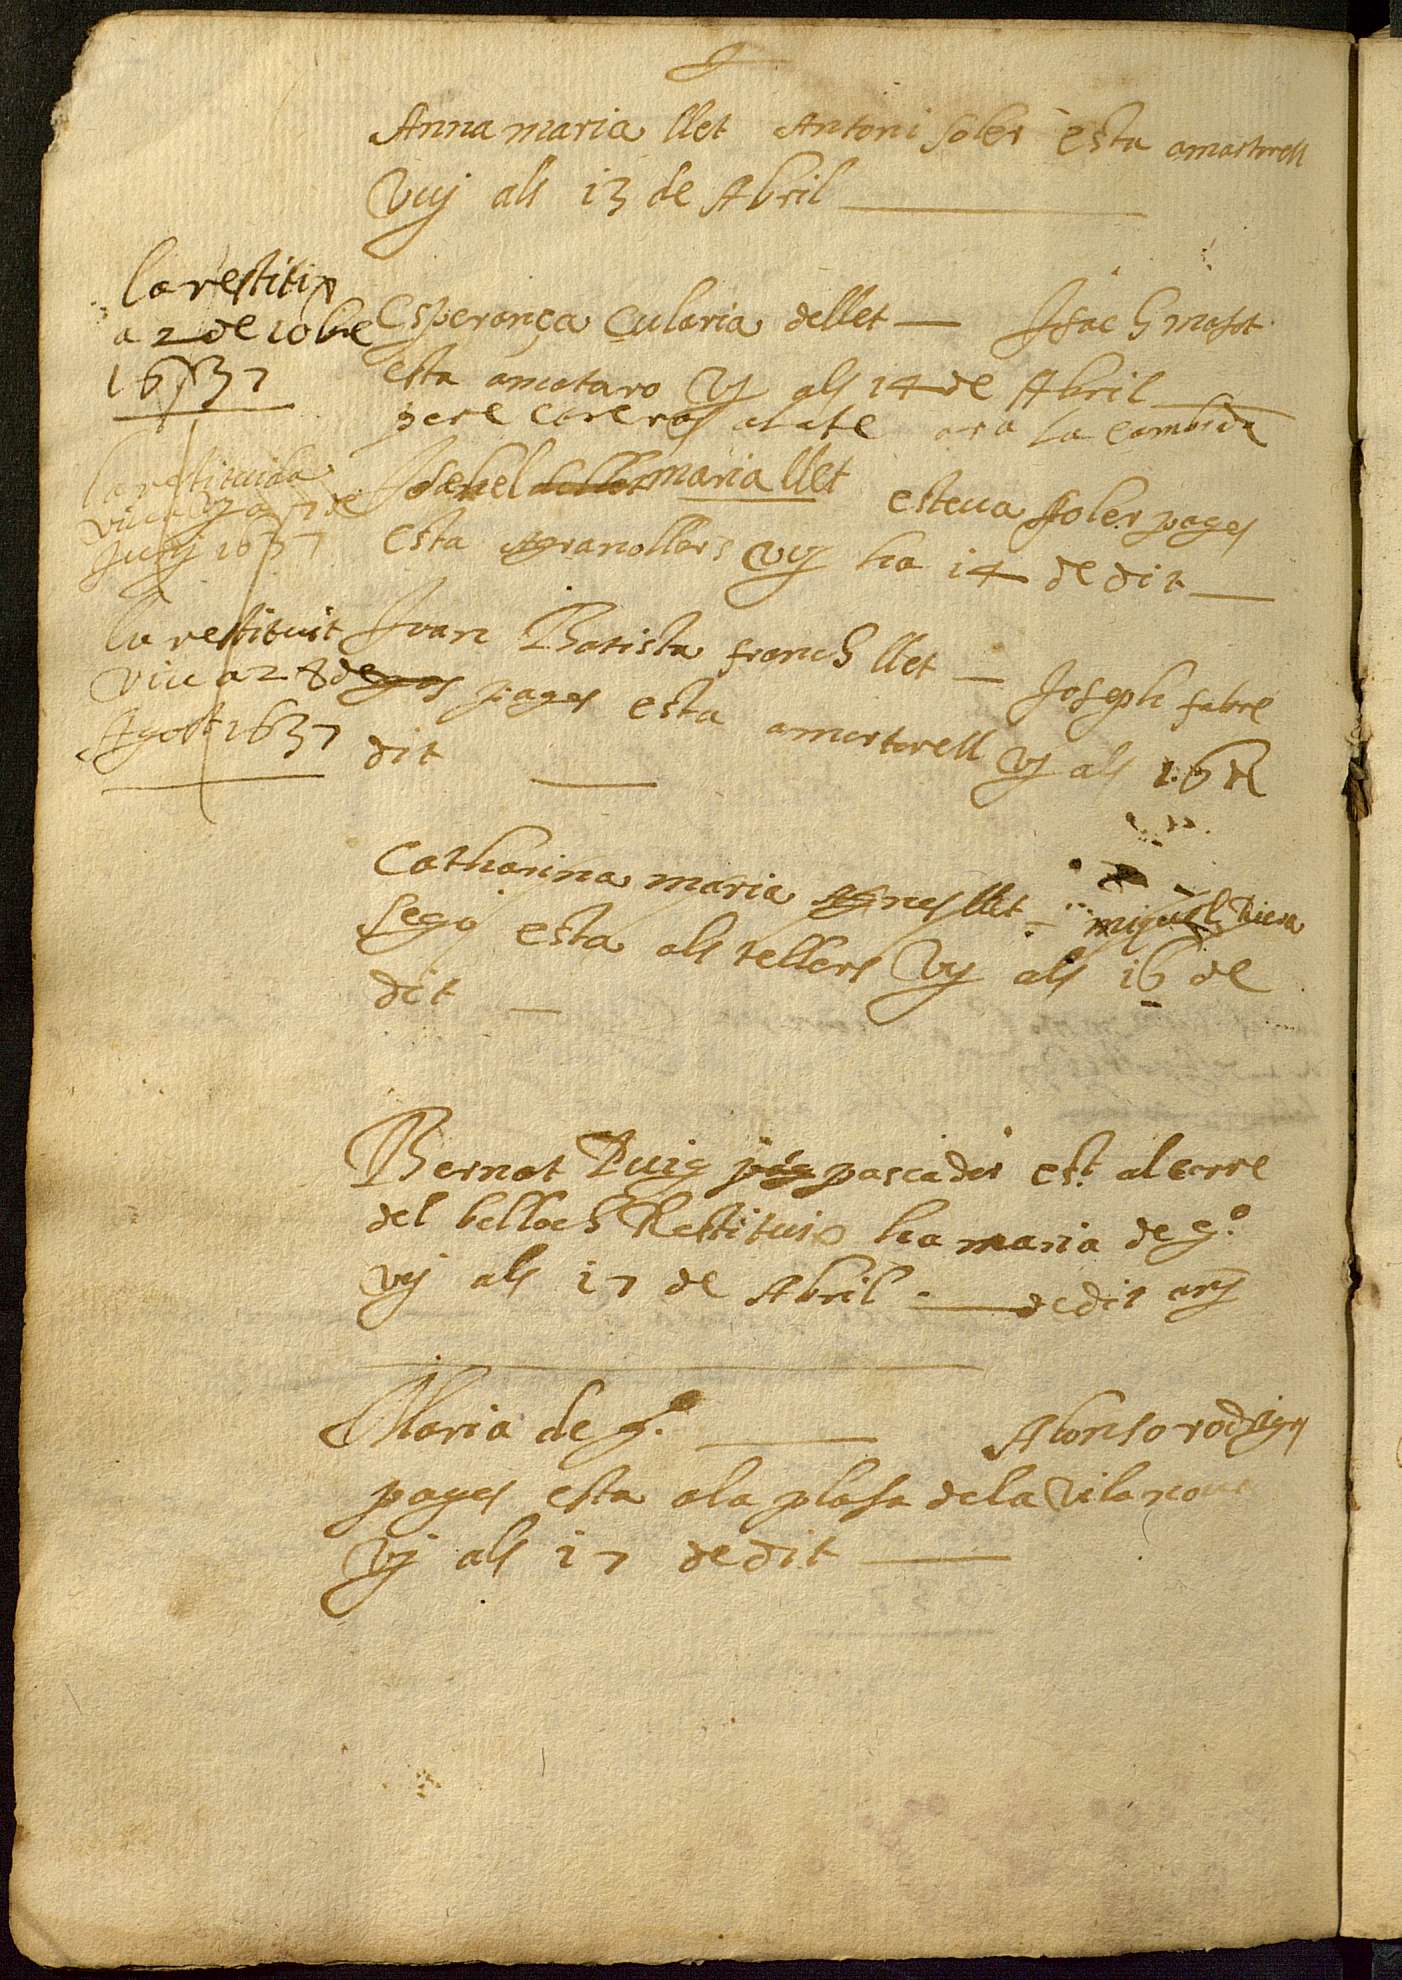 Anna maria llet Antoni soler esta amartorell
Vuy als 13 de Abril
la restitix
a 2 de 10bre
1637
Esperança Eularia dellet — Isach masot
esta amataro Vy als 14 de Abril
pere careras ara la
la restituida
viva
Juny 1637
Isabel dellet maria llet esteva soler pages
esta agranollers vy ha 14 de dit
la restituit
viu a 28 de
Agost 1637
Juan Batista franch llet — Joseph fabre
pages esta amartorell vy als 16 de
dit
Catharina maria Agnes llet — miquel Riera
sego esta als tellers Vy als 16 de
dit —
Bernat Puig pag pascador est. al carre
del belloch Restituix ha maria de g.º
vy als 17 de Abril — de dit any
Maria de g.º — Alonso rodrigos
pages esta ala plasa de la vila nova
Vy als 17 de dit